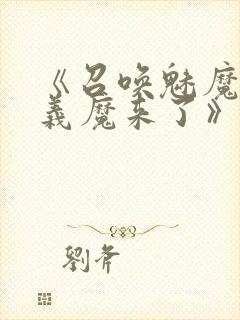 《召唤魅魔
義魔来了》
劉斧